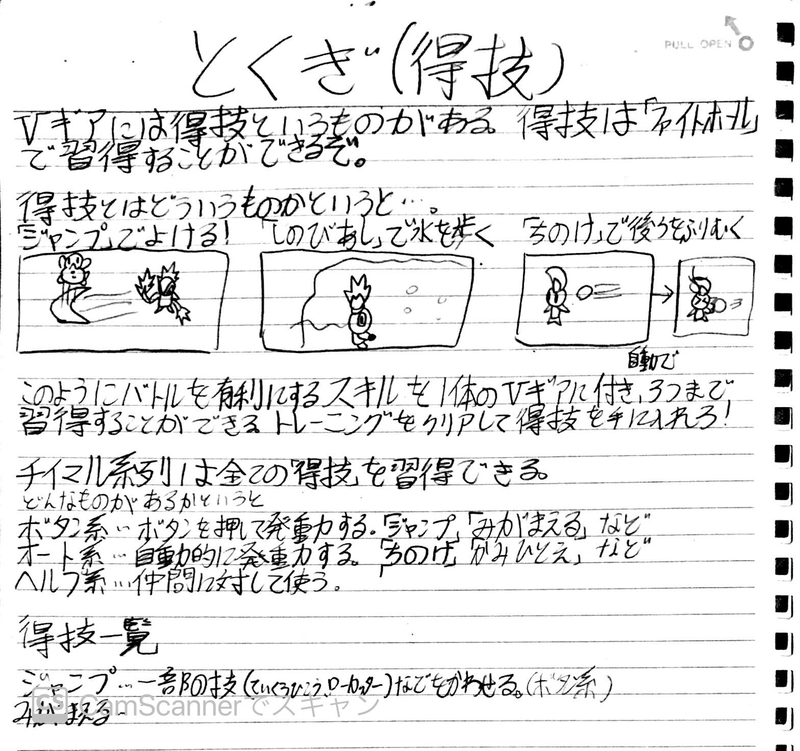 PULL OPEN
とくぎ(得技)
Vギアには得技というものがある。得技は「ファイトホール」
で習得することができるぞ。
得技とはどういうものかというと…。
「ジャンプ」でよける! 「しのびあし」で氷を歩く 「ちのけ」で後ろをふりむく
自動で
このようにバトルを有利にするスキルを1体のVギアに付き、3つまで
習得することができる。トレーニングをクリアして得技を手に入れろ!
チイマル系列は全ての「得技」を習得できる。
どんなものがあるかというと
ボタン系…ボタンを押して発動する。「ジャンプ」「みがまえる」など
オート系…自動的に発動する。「ちのけ」「かみひとえ」など
ヘルプ系…仲間に対して使う。
得技一覧
ジャンプ…一部の技(ていくうひこう、ローカッター)などをかわせる。(ボタン系)
みがまえる…
CS CamScannerでスキャン